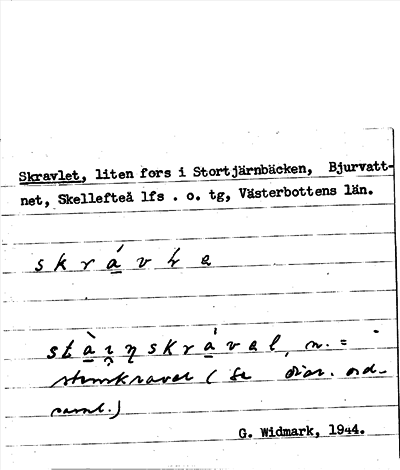 Skravlet, liten fors i Stortjärnbäcken, Bjurvatt-
net, Skellefteå lfs . o. tg, Västerbottens län.
s k r á v
st skrával, n. =
(Se diar. ord-
saml.)
G. Widmark, 1944.